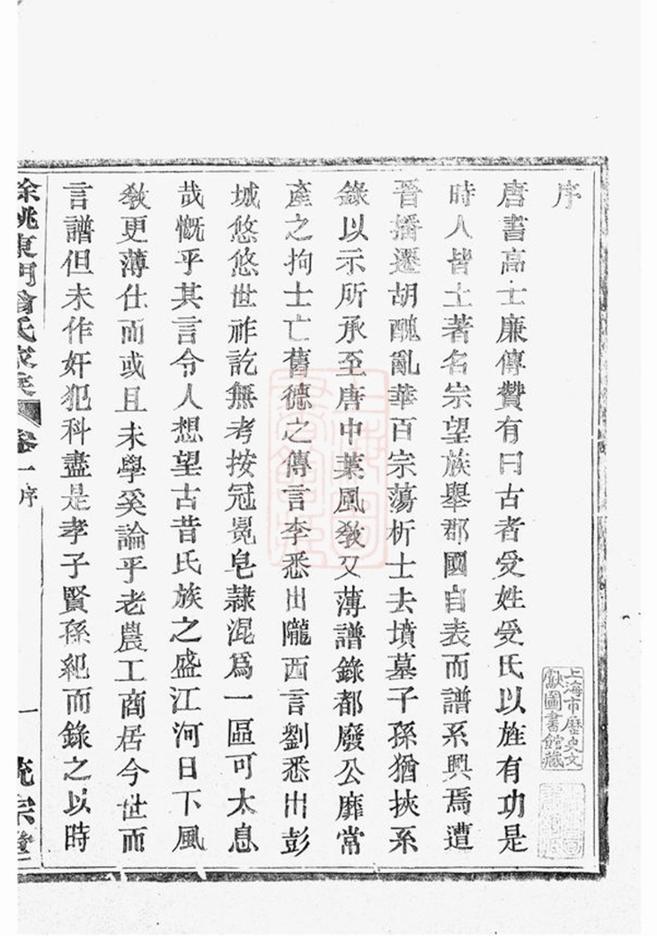 序
唐書高士廉傳贊有曰古者受姓受氏以旌有功是
時人皆土著名宗望族舉郡國自表而譜系興焉遭
晉播遷胡醜亂華百宗蕩析士去墳墓子孫猶挾系
錄以示所承至唐中葉風敎又薄譜錄都廢公靡常
產之拘士亡舊德之傳言李悉出隴西言劉悉出彭
城悠悠世祚訖無考按冠冕皂隸混爲一區可太息
哉慨乎其言令人想望古昔氏族之盛江河日下風
敎更薄仕而或且未學奚論乎老農工商居今世而
言譜但未作奸犯科盡是孝子賢孫紀而錄之以時
餘姚東門氏家乘 卷一序 一
上海市歷史文
獻圖書館藏